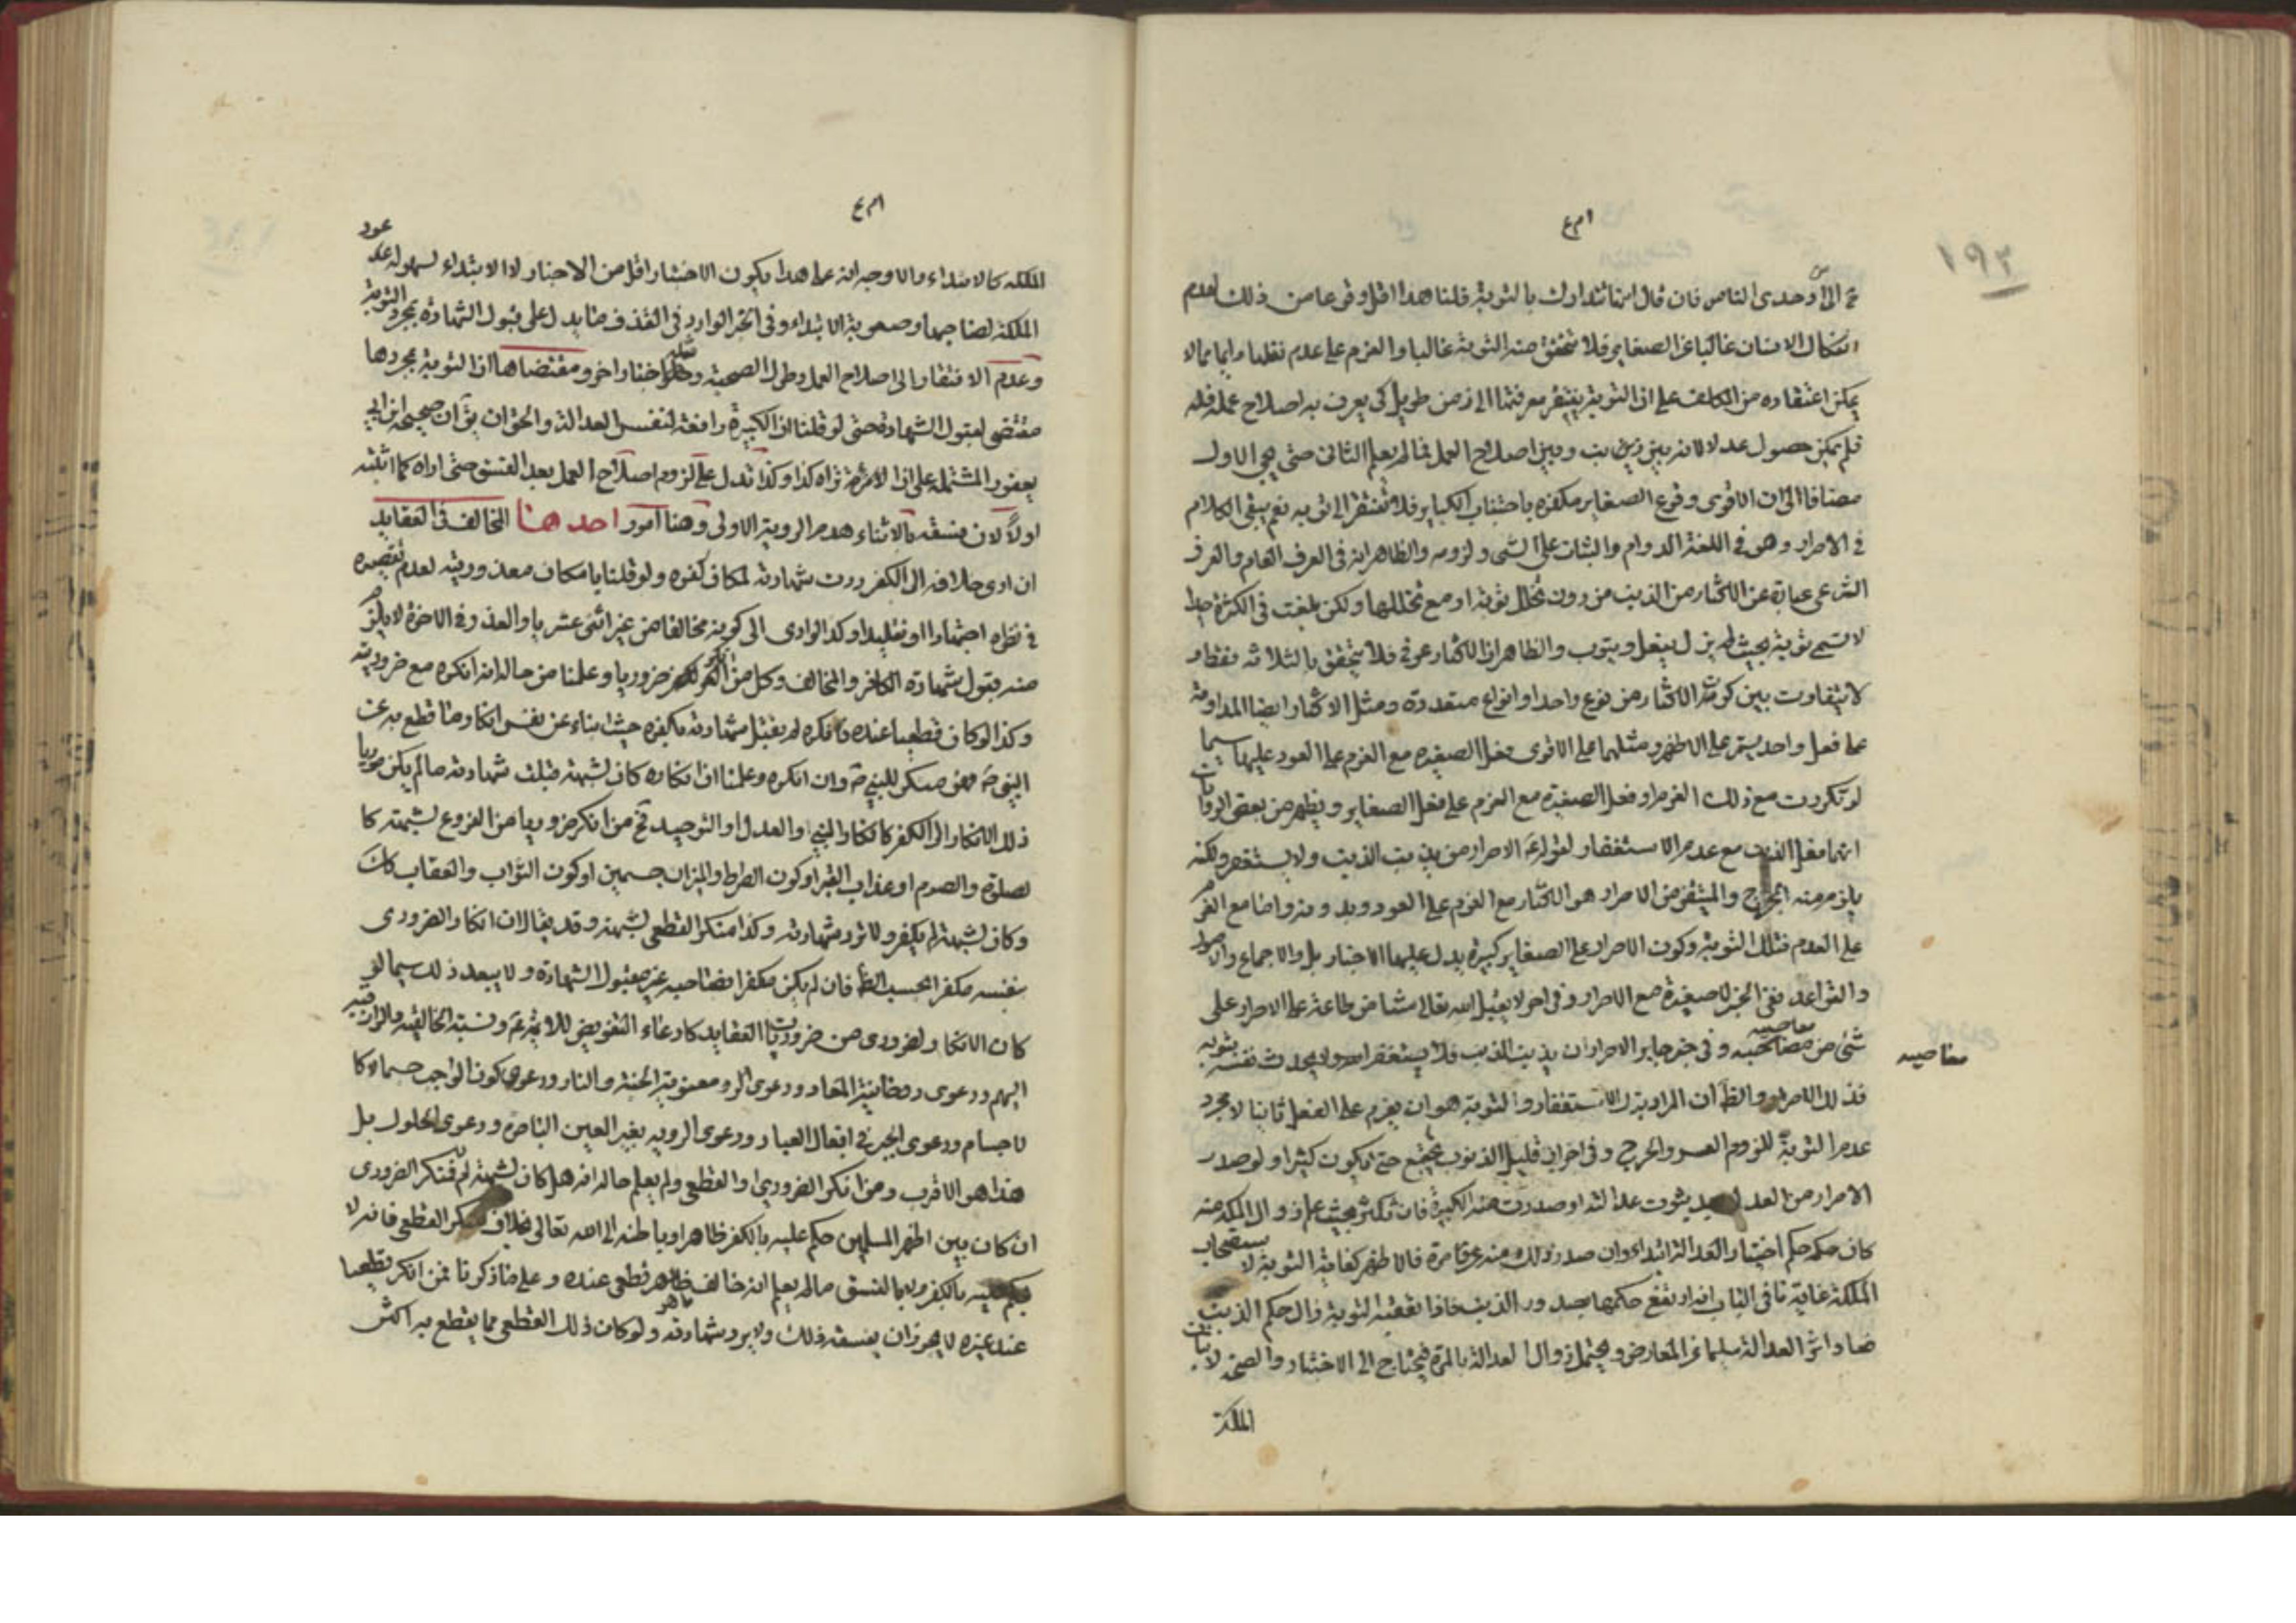 ١٩٣
في الأوحدي الناس فان قال انها تتدارك بالتوبة قلنا هذا اقل وقوعا من ذلك لعدم
انفكاك الانسان غالبا عن الصغاير فلا تتحقق منه التوبة غالبا والعزم على عدم فعلها دايما مما لا
يمكن اعتقاده من المكلف على ان التوبة يفتقر معرفتها الى زمن طويل كي يعرف به اصلاح عمله فله
فلم يمكن حصول عدلا لانه بين ذنب وبين اصلاح العمل فما لم يعلم الثاني حتى يجي الاول
مضافا الى ان الاقوى وقوع الصغاير مكفره باجتناب الكباير فلا تفتقر الى توبه نعم يبقى الكلام
في الاصرار وهو في اللغة الدوام والثبات على الشي ولزومه والظاهر انه في العرف العام والعرف
الشرعي عبارة عن الاكثار من الذنب من دون تخلل توبة او مع تخللها ولكن بلغت في الكثرة حدا
لا تسمى توبة بحيث لم يزل يفعل ويتوب والظاهر ان الاكثار عرفي فلا يتحقق بالثلاثه فقط و
لا يتفاوت بين كون الاكثار من نوع واحد او انواع متعددة ومثل الاكثار ايضا المداومة
على فعل واحد يستمر على الاظهر ومثلهما على الاقوى فعل الصغيره مع العزم على العود عليها سيما
لو تكررت مع ذلك العزم او فعل الصغيرة مع العزم على فعل الصغاير ويظهر من بعض الروايات
انها فعل الذنب مع عدم الاستغفار لقوله ع الاصرار من يذنب الذنب ولا يستغفر ولكنه
يلزم منه الحرج والمتيقن من الاصرار هو الاكثار مع العزم على العود وبدونه واما مع العزم
على العدم فتلك التوبة وكون الاصرار على الصغاير كبيرة يدل عليها الاخبار بل والاجماع
والقواعد ففي الخبر لا صغيرة مع الاصرار وفي اخر لا يقبل الله تعالى شيئا من طاعته على الاصرار على
شئ من معاصيه وفي خبر جابر الاصرار ان يذنب الذنب فلا يستغفر الله ولا يحدث نفسه بتوبه
معاصيه
فذلك الاصرار والظ ان المراد بترك الاستغفار والتوبة هو ان يعزم على الفعل ثانيا لا مجرد
عدم التوبة للزوم العسر والحرج وفي اخر ان قليل الذنوب يجتمع حتى يكون كثيرا ولو صدر
الاصرار من العدل بعد ثبوت عدالته او صدرت منه الكبيرة فان تكثر بحيث علم زوال الملكة منه
كان حكمه حكم اختبار العدالة ابتداء وان صدر ذلك منه مرة فالاظهر كفاية التوبة لاستصحاب
الملكة غاية ما في الباب انه ارتفع حكمها بصدور الذنب فاذا تعقبه التوبة زال حكم الذنب
فصار اثر العدالة سليما عن المعارض ويحتمل زوال العدالة بالمرة فيحتاج الى الاختبار والصحبة لاثبات
الملكة
الملكه كالابتداء والاوجه انه على هذا يكون الاختبار اقل من الاختبار لا الابتداء لسهوله عود
الملكة لصاحبها وصعوبة الابتداء وفي الخبر الوارد في القذف ما يدل على قبول الشهادة بمجرد التوبة
وعدم الافتقار الى اصلاح العمل وطول الصحبة ومثله اخبار اخر ومقتضاها ان التوبة بمجردها
مقتضى لقبول الشهادة حتى لو قلنا ان الكبيرة رافعة لنفس العدالة والحق ان يق ان صحيحة ابن ابي
يعفور المشتمله على ان لا ترد تراه كذا وكذا تدل على لزوم اصلاح العمل بعد الفسق حتى اراه كما اثبته
اولا لان فسقه بالاثناء هدم الروية الاولى وهنا امور احدهنا المخالف في العقايد
ان ادى خلافه الى الكفر ردت شهادته لمكان كفره ولو قلنا بامكان معذوريته لعدم تقصيره
في نظره اجتهادا او تقليدا وكذا لو ادى الى كونه مخالفا من غير اثنى عشريا والعذر في الاخرة لا يلزم
منه قبول شهادة الكافر والمخالف وكل من انكر ضروريا وعلمنا من حاله انه انكره مع ضروريته
وكذا لو كان قطعيا عنده فانكره لم تقبل شهادته بكفره حيث بناء عن نفس انكار ما قطع به عن
النبي ص فهو منكر للنبي ص وان انكره وعلمنا ان انكاره كان لشبهة قبلت شهادته ما لم يكن مؤديا
ذلك الانكار الى الكفر كانكار النبي او العدل او التوحيد فح من انكر ضروريا من الفروع لشبهته كا
لصلوة والصوم او عذاب القبر او كون الصراط والميزان جسمين او كون الثواب والعقاب كك
وكان لشبهة لم يكفر ولا ترد شهادته وكذا منكر القطعي لشبهة وقد يقال ان انكار الضروري
بنفسه مكفر بحسب الظ فان لم يكن مكفرا فصاحبه غير مقبول الشهادة ولا يبعد ذلك سيما لو
كان الانكار لضروري من ضروريات العقايد كادعاء التفويض للائمة ع ونسبة الخالقيه والرازقيه
اليهم ودعوى روحانية المعاد ودعوى معنوية الجنة والنار ودعوى كون الواجب جسما كا
لاجسام ودعوى الجبر في افعال العباد ودعوى الرويه بغير العين الباصرة ودعوى الحلول بل
هذا هو الاقرب ومن انكر الضروري او القطعي ولم يعلم حاله انه هل كان لشبهة ام لا فمنكر الضروري
ان كان بين اظهر المسلمين حكم عليه بالكفر ظاهرا وباطنه الى الله تعالى بخلاف منكر القطعي فانه لا
يحكم عليه بالكفر ولا بالفسق ما لم يعلم انه خالف ما هو قطعي عنده وعلى ما ذكرنا فمن انكر قطعيا
عند غيره لا يجوز ان يفسقه ذلك ولا يرد شهادته ولو كان ذلك القطعي مما يقطع به اكثر